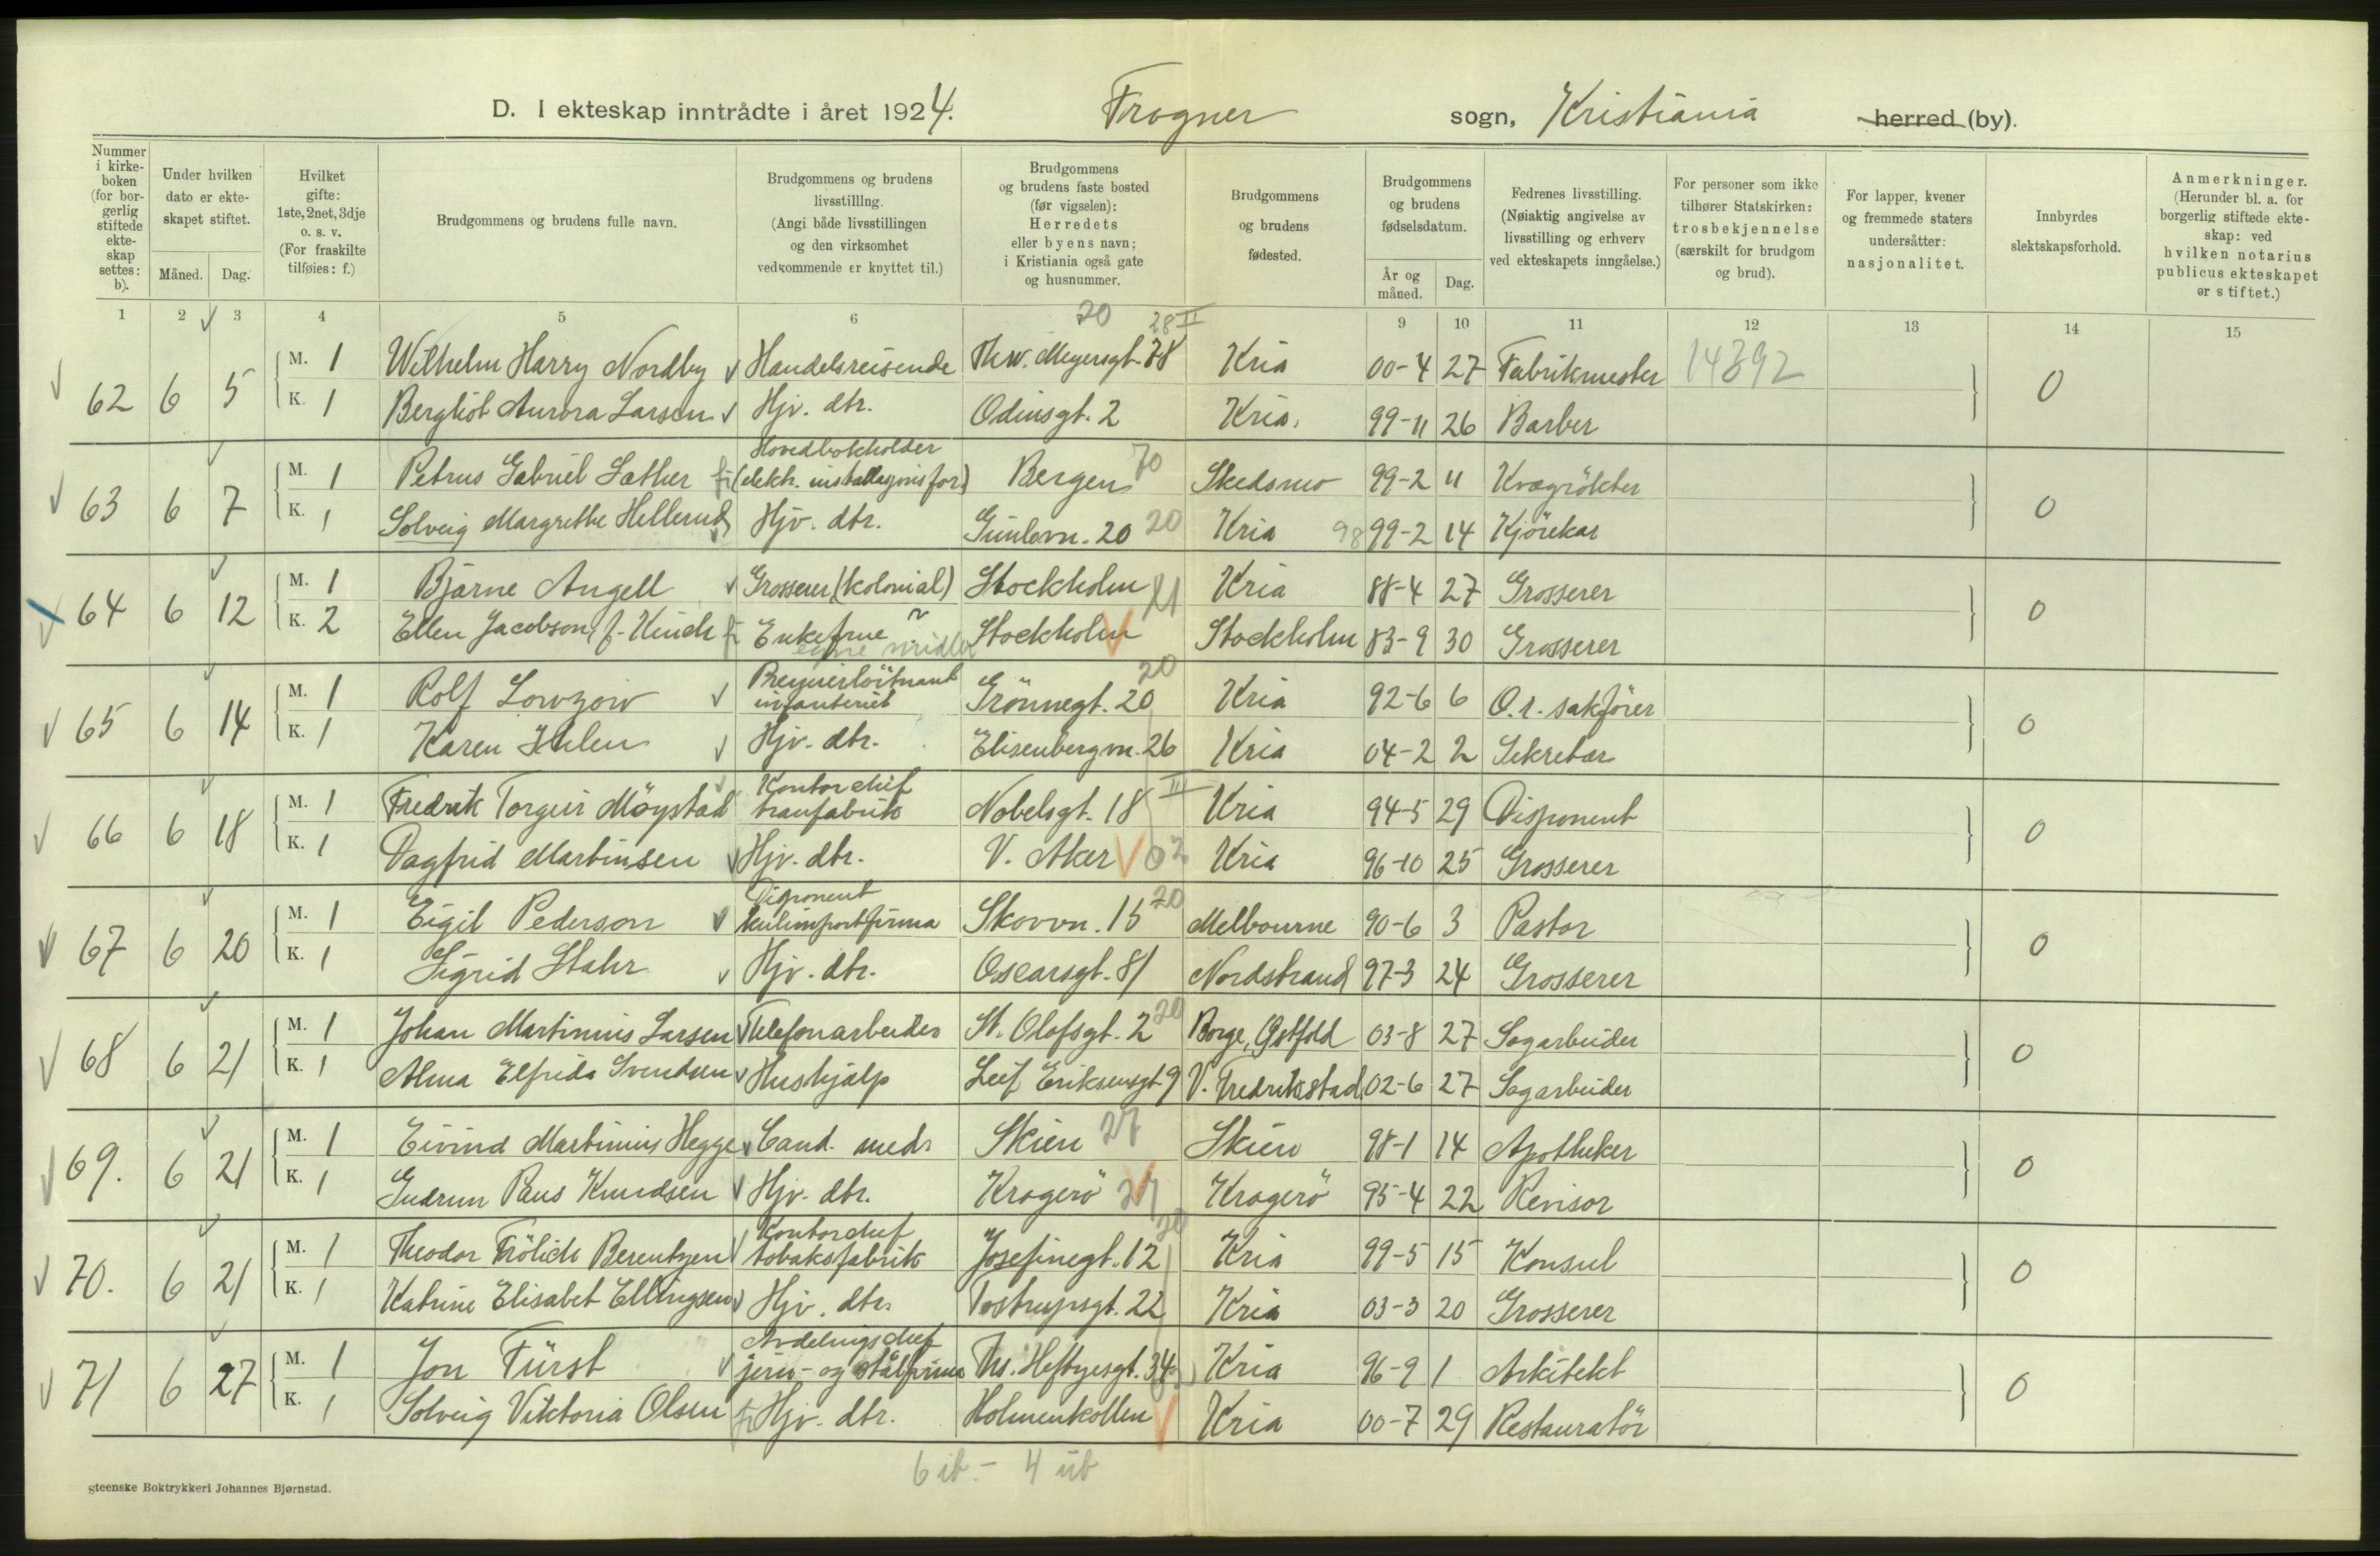 D. I ekteskap inntrådte i året 1924. Frogner sogn, Kristiania herred (by).
Nummer i kirkeboken (for borgerlig stiftede ekteskap settes: b).
Under hvilken dato er ekteskapet stiftet.
Måned. Dag.
Hvilket gifte: 1ste, 2net, 3dje o. s. v. (For fraskilte tilføies: f.)
Brudgommens og brudens fulle navn.
Brudgommens og brudens livsstilling. (Angi både livsstillingen og den virksomhet vedkommende er knyttet til.)
Brudgommens og brudens faste bosted (før vigselen): Herredets eller byens navn; i Kristiania også gate og husnummer.
Brudgommens og brudens fødested.
Brudgommens og brudens fødselsdatum.
År og måned. Dag.
Fedrenes livsstilling. (Nøiaktig angivelse av livsstilling og erhverv ved ekteskapets inngåelse.)
For personer som ikke tilhører Statskirken: trosbekjennelse (særskilt for brudgom og brud).
For lapper, kvener og fremmede staters undersåtter: nasjonalitet.
Innbyrdes slektskapsforhold.
Anmerkninger. (Herunder bl. a. for borgerlig stiftede ekteskap: ved hvilken notarius publicus ekteskapet er stiftet.)
1 2 3 4 5 6 9 10 11 12 13 14 15
20 28 II
62 6 5 M. 1 Wilhelm Harry Nordby Handelsreisende Thv. Meyersgt. 78 Kria 00-4 27 Fabrikmester 14392 0
K. 1 Bergliot Aurora Larsen Hjv. dtr. Odinsgt. 2 Kria. 99-11 26 Barber
63 6 7 M. 1 Petrus Gabriel Sæther Hovedbokholder (elektr. installasjonsforr.) Bergen 70 Skedsmo 99-2 11 Kvægrökter 0
K. 1 Solveig Margrethe Hellerud Hjv. dtr. Gimlevn. 20 20 Kria 98 99-2 14 Kjörekar
64 6 12 M. 1 Bjarne Angell Grosserer (kolonial) Stockholm Kria 88-4 27 Grosserer 0
K. 2 Ellen Jacobson, f. Enkefrue Stockholm Stockholm 83-9 30 Grosserer
egne midler
65 6 14 M. 1 Rolf Lowzow Premierlöitnant infanteriet Grönnegt. 20 20 Kria 92-6 6 O.r. sakförer 0
K. 1 Karen Ihlen Hjv. dtr. Elisenbergvn. 26 Kria 04-2 2 Sekretær
66 6 18 M. 1 Fredrik Torgeir Möystad Kontorchef tranfabrik Nobelsgt. 18 III Kria 94-5 29 Disponent 0
K. 1 Dagfrid Martinsen Hjv. dtr. V. Aker 02 Kria 96-10 25 Grosserer
67 6 20 M. 1 Eigil Pederson Disponent kulimportfirma Skovvn. 15 20 Melbourne 90-6 3 Pastor 0
K. 1 Sigrid Stahr Hjv. dtr. Oscarsgt. 81 Nordstrand 97-3 24 Grosserer
68 6 21 M. 1 Johan Martinius Larsen Telefonarbeider St. Olofsgt. 2 20 Borge, Östfold 03-8 27 Sagarbeider 0
K. 1 Alma Elfrida Svendsen Hushjælp Leif Eriksensgt. 9 V. Fredrikstad 02-6 27 Sagarbeider
69. 6 21 M. 1 Eivind Martinius Hegge Cand. med. Skien 27 Skien 98-1 14 Apotheker 0
K. 1 Gudrun Paus Knudsen Hjv. dtr. Kragerö 27 Kragerö 95-4 22 Revisor
70. 6 21 M. 1 Theodor Frölich Berentzen Kontorchef tobaksfabrik Josefinegt. 12 20 Kria 99-5 15 Konsul 0
K. 1 Katrine Elisabet Ellingsen Hjv. dtr. Tostrupsgt. 22 Kria 03-3 20 Grosserer
71 6 27 M. 1 Jon Fürst Avdelingschef jern- og stålfirma Th. Heftyesgt. 34 Kria 96-9 1 Arkitekt 0
K. 1 Solveig Viktoria Olsen Hjv. dtr. Holmenkollen Kria 00-7 29 Restauratör
6 ib. - 4 ub
gteenske Boktrykkeri Johannes Bjørnstad.